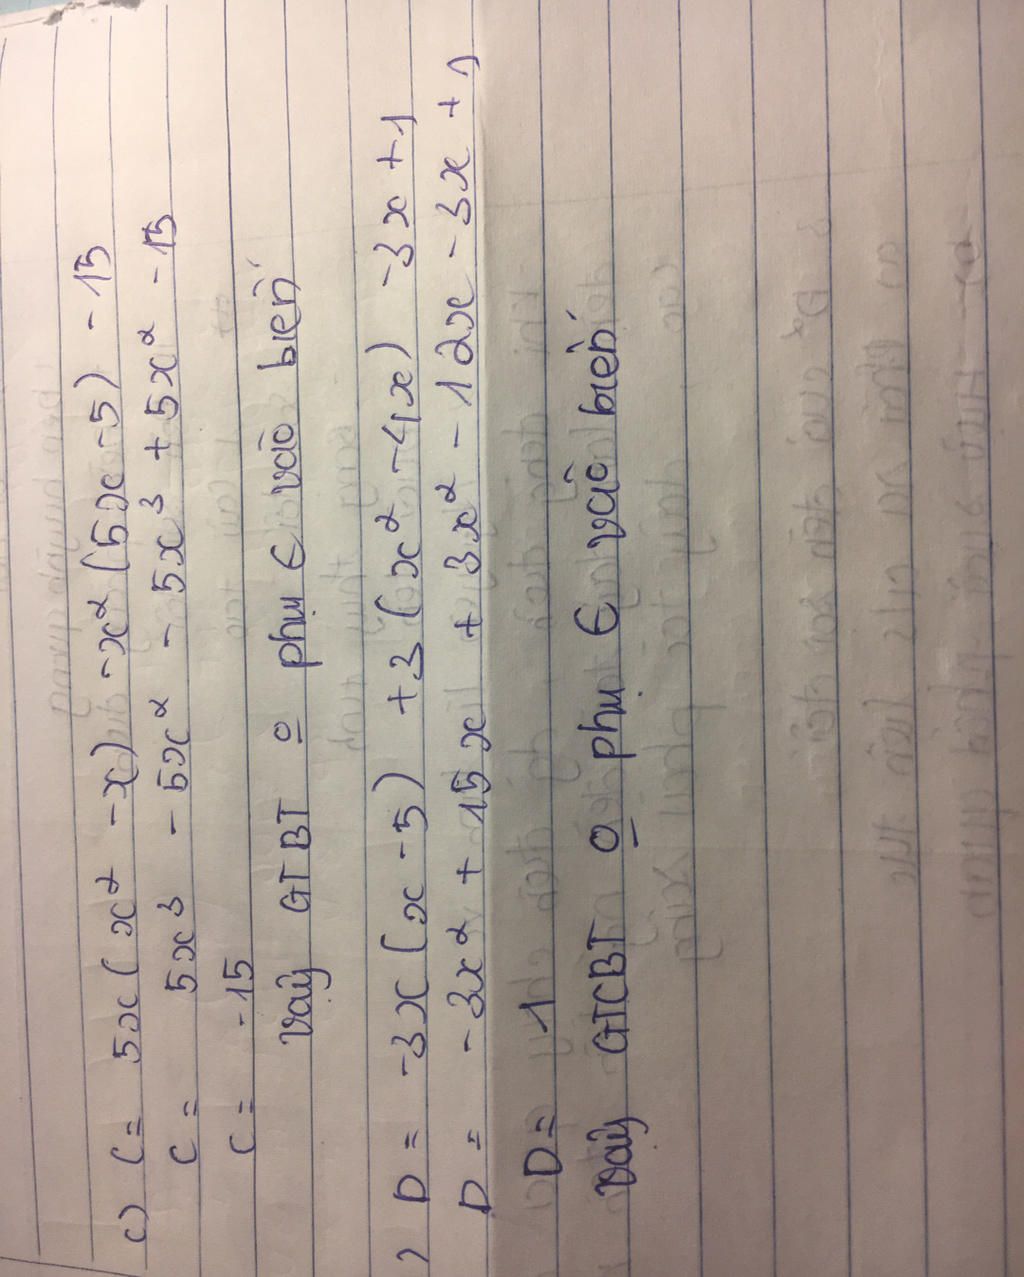 c) C = 5x(x² - x) - x²(5x - 5) - 15
C = 5x³ - 5x² - 5x³ + 5x² - 15
C = -15
Vậy GTBT o phụ ∈ vào biến
) D = -3x(x - 5) + 3(x² - 4x) - 3x + 1
D = -3x² + 15x + 3x² - 12x - 3x + 1
D = 1
Vậy GTCBT o phụ ∈ vào biến